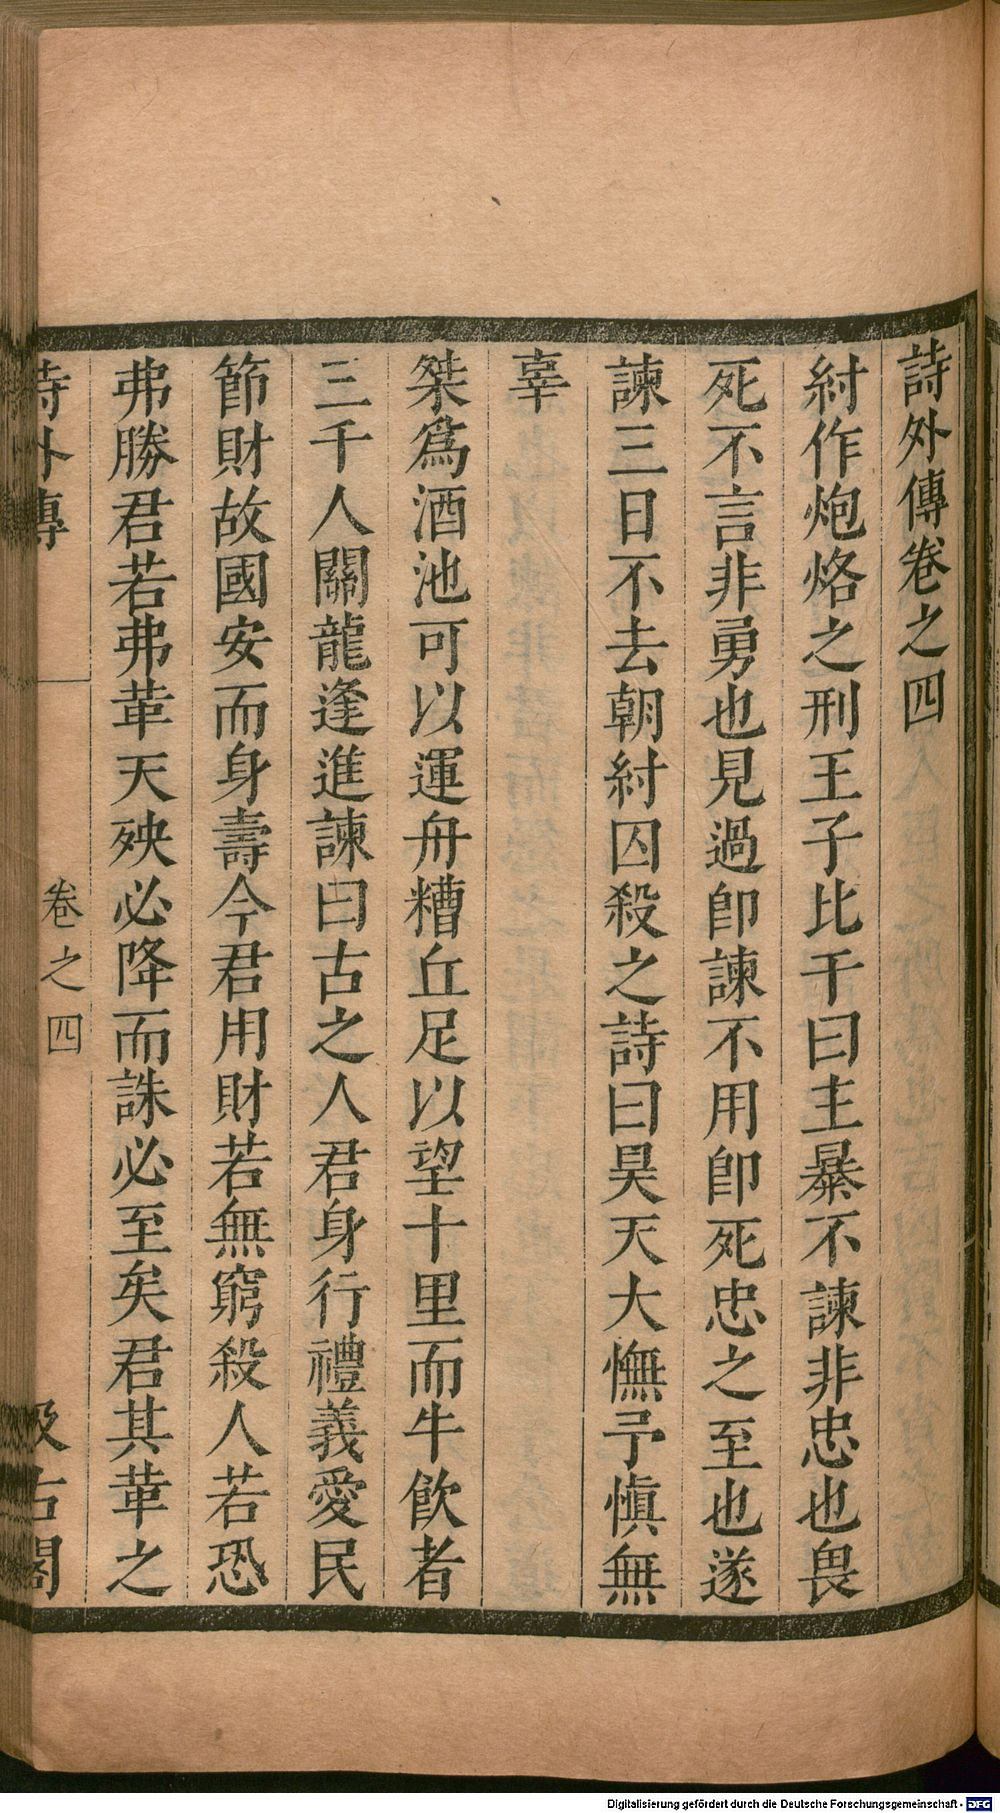 詩外傳卷之四
紂作炮烙之刑王子比干曰主暴不諫非忠也畏
死不言非勇也見過卽諫不用卽死忠之至也遂
諫三日不去朝紂囚殺之詩曰昊天大憮予愼無
辜
桀爲酒池可以運舟糟丘足以望十里而牛飮者
三千人關龍逢進諫曰古之人君身行禮義愛民
節財故國安而身壽今君用財若無窮殺人若恐
弗勝君若弗革天殃必降而誅必至矣君其革之
詩外傳 卷之四 汲古閣
Digitalisierung gefördert durch die Deutsche Forschungsgemeinschaft - DFG